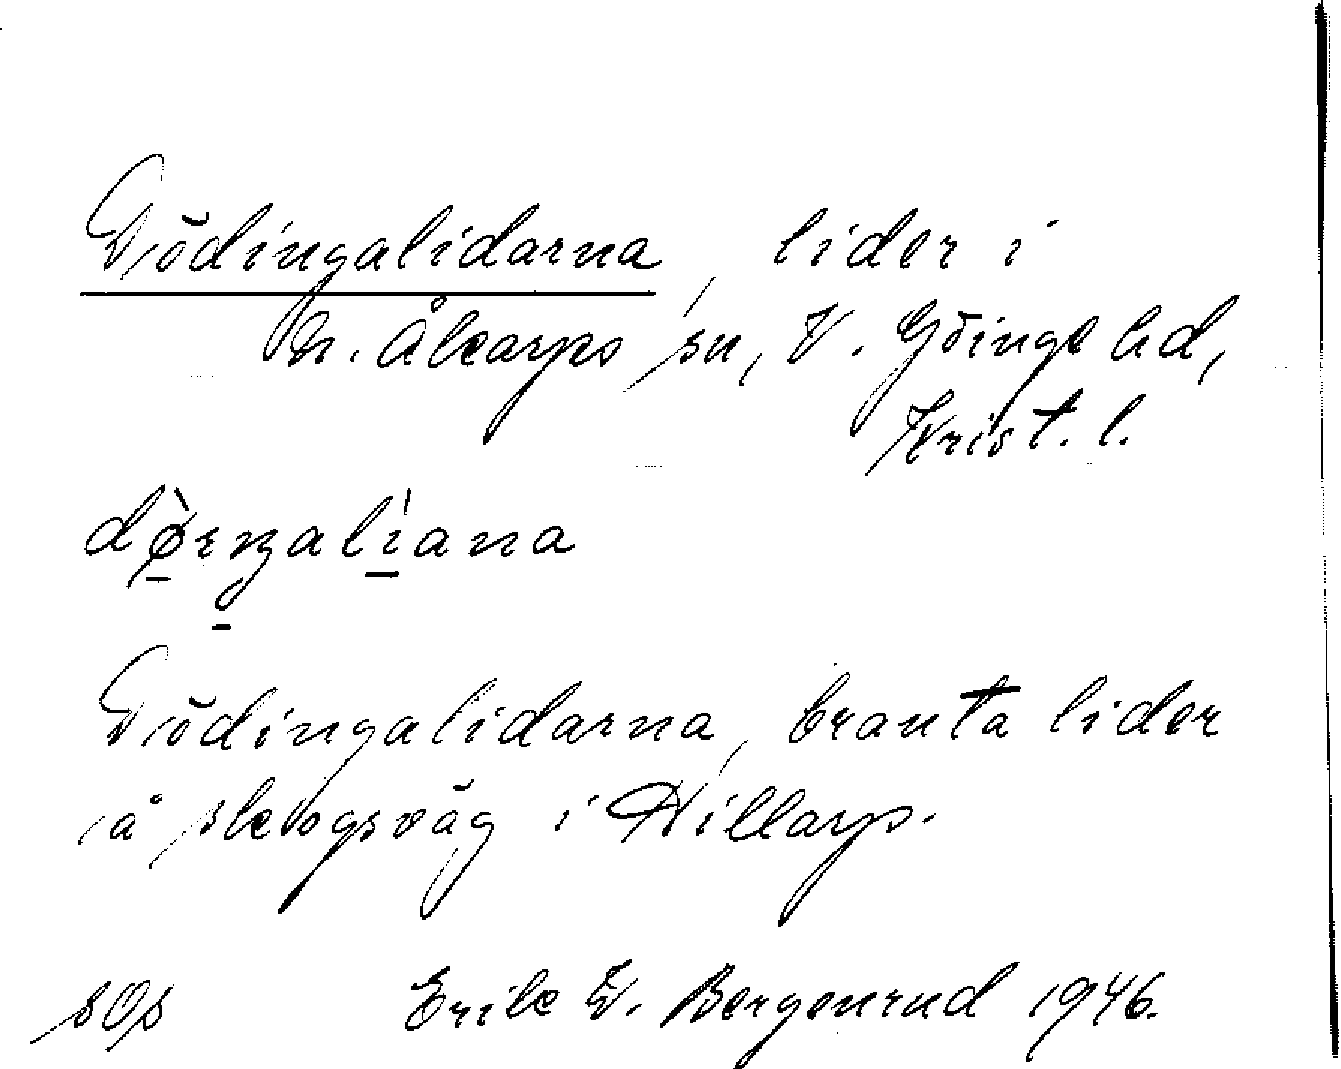 Dödingalidarna, lider i
N. Åkarps sn, V. Göinge hd,
Krist. l.
dø̀ɛŋaliana
Dödingalidarna, branta lider
å skogsväg i Hillarp.
sOs Erik W. Bergenrud 1946.